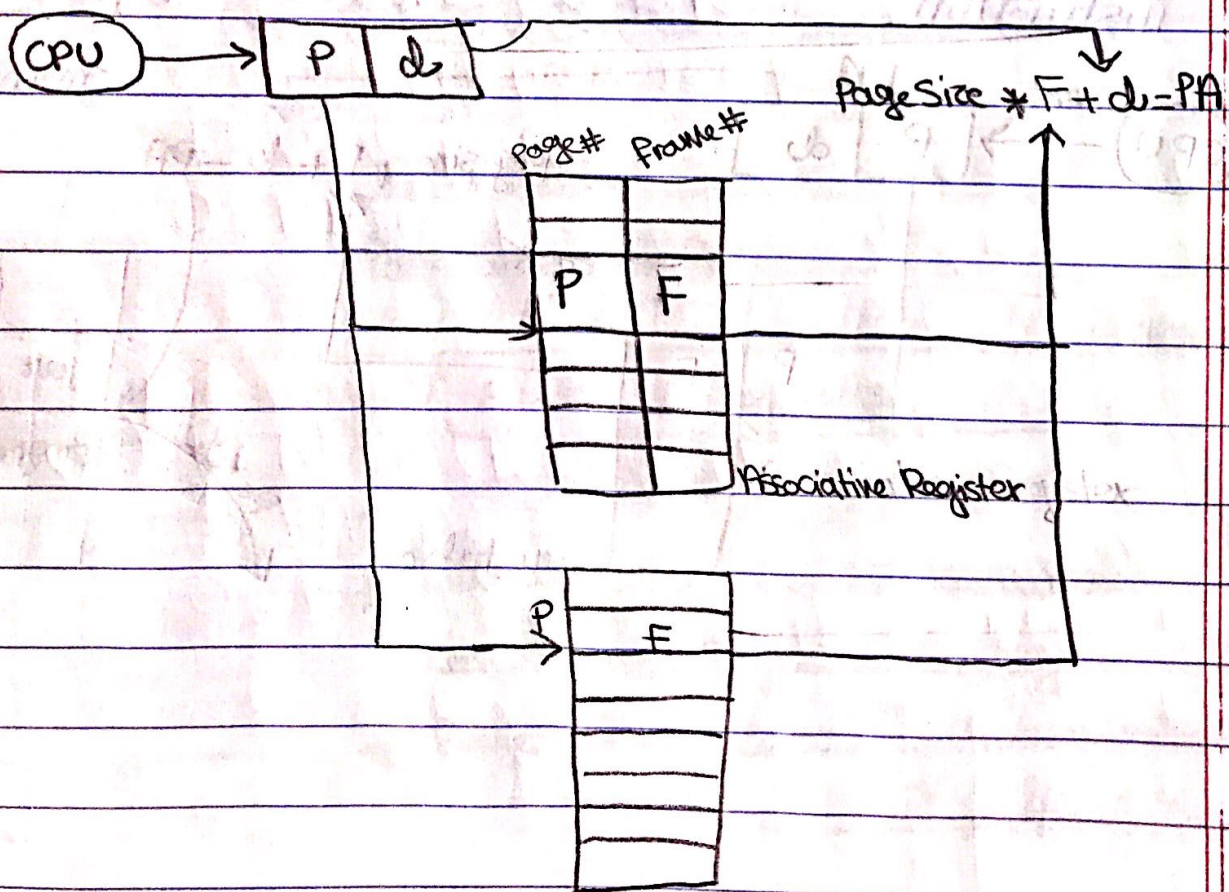 CPU P d
PageSize * F + d = PA
page# frame#
P F
Associative Register
P F